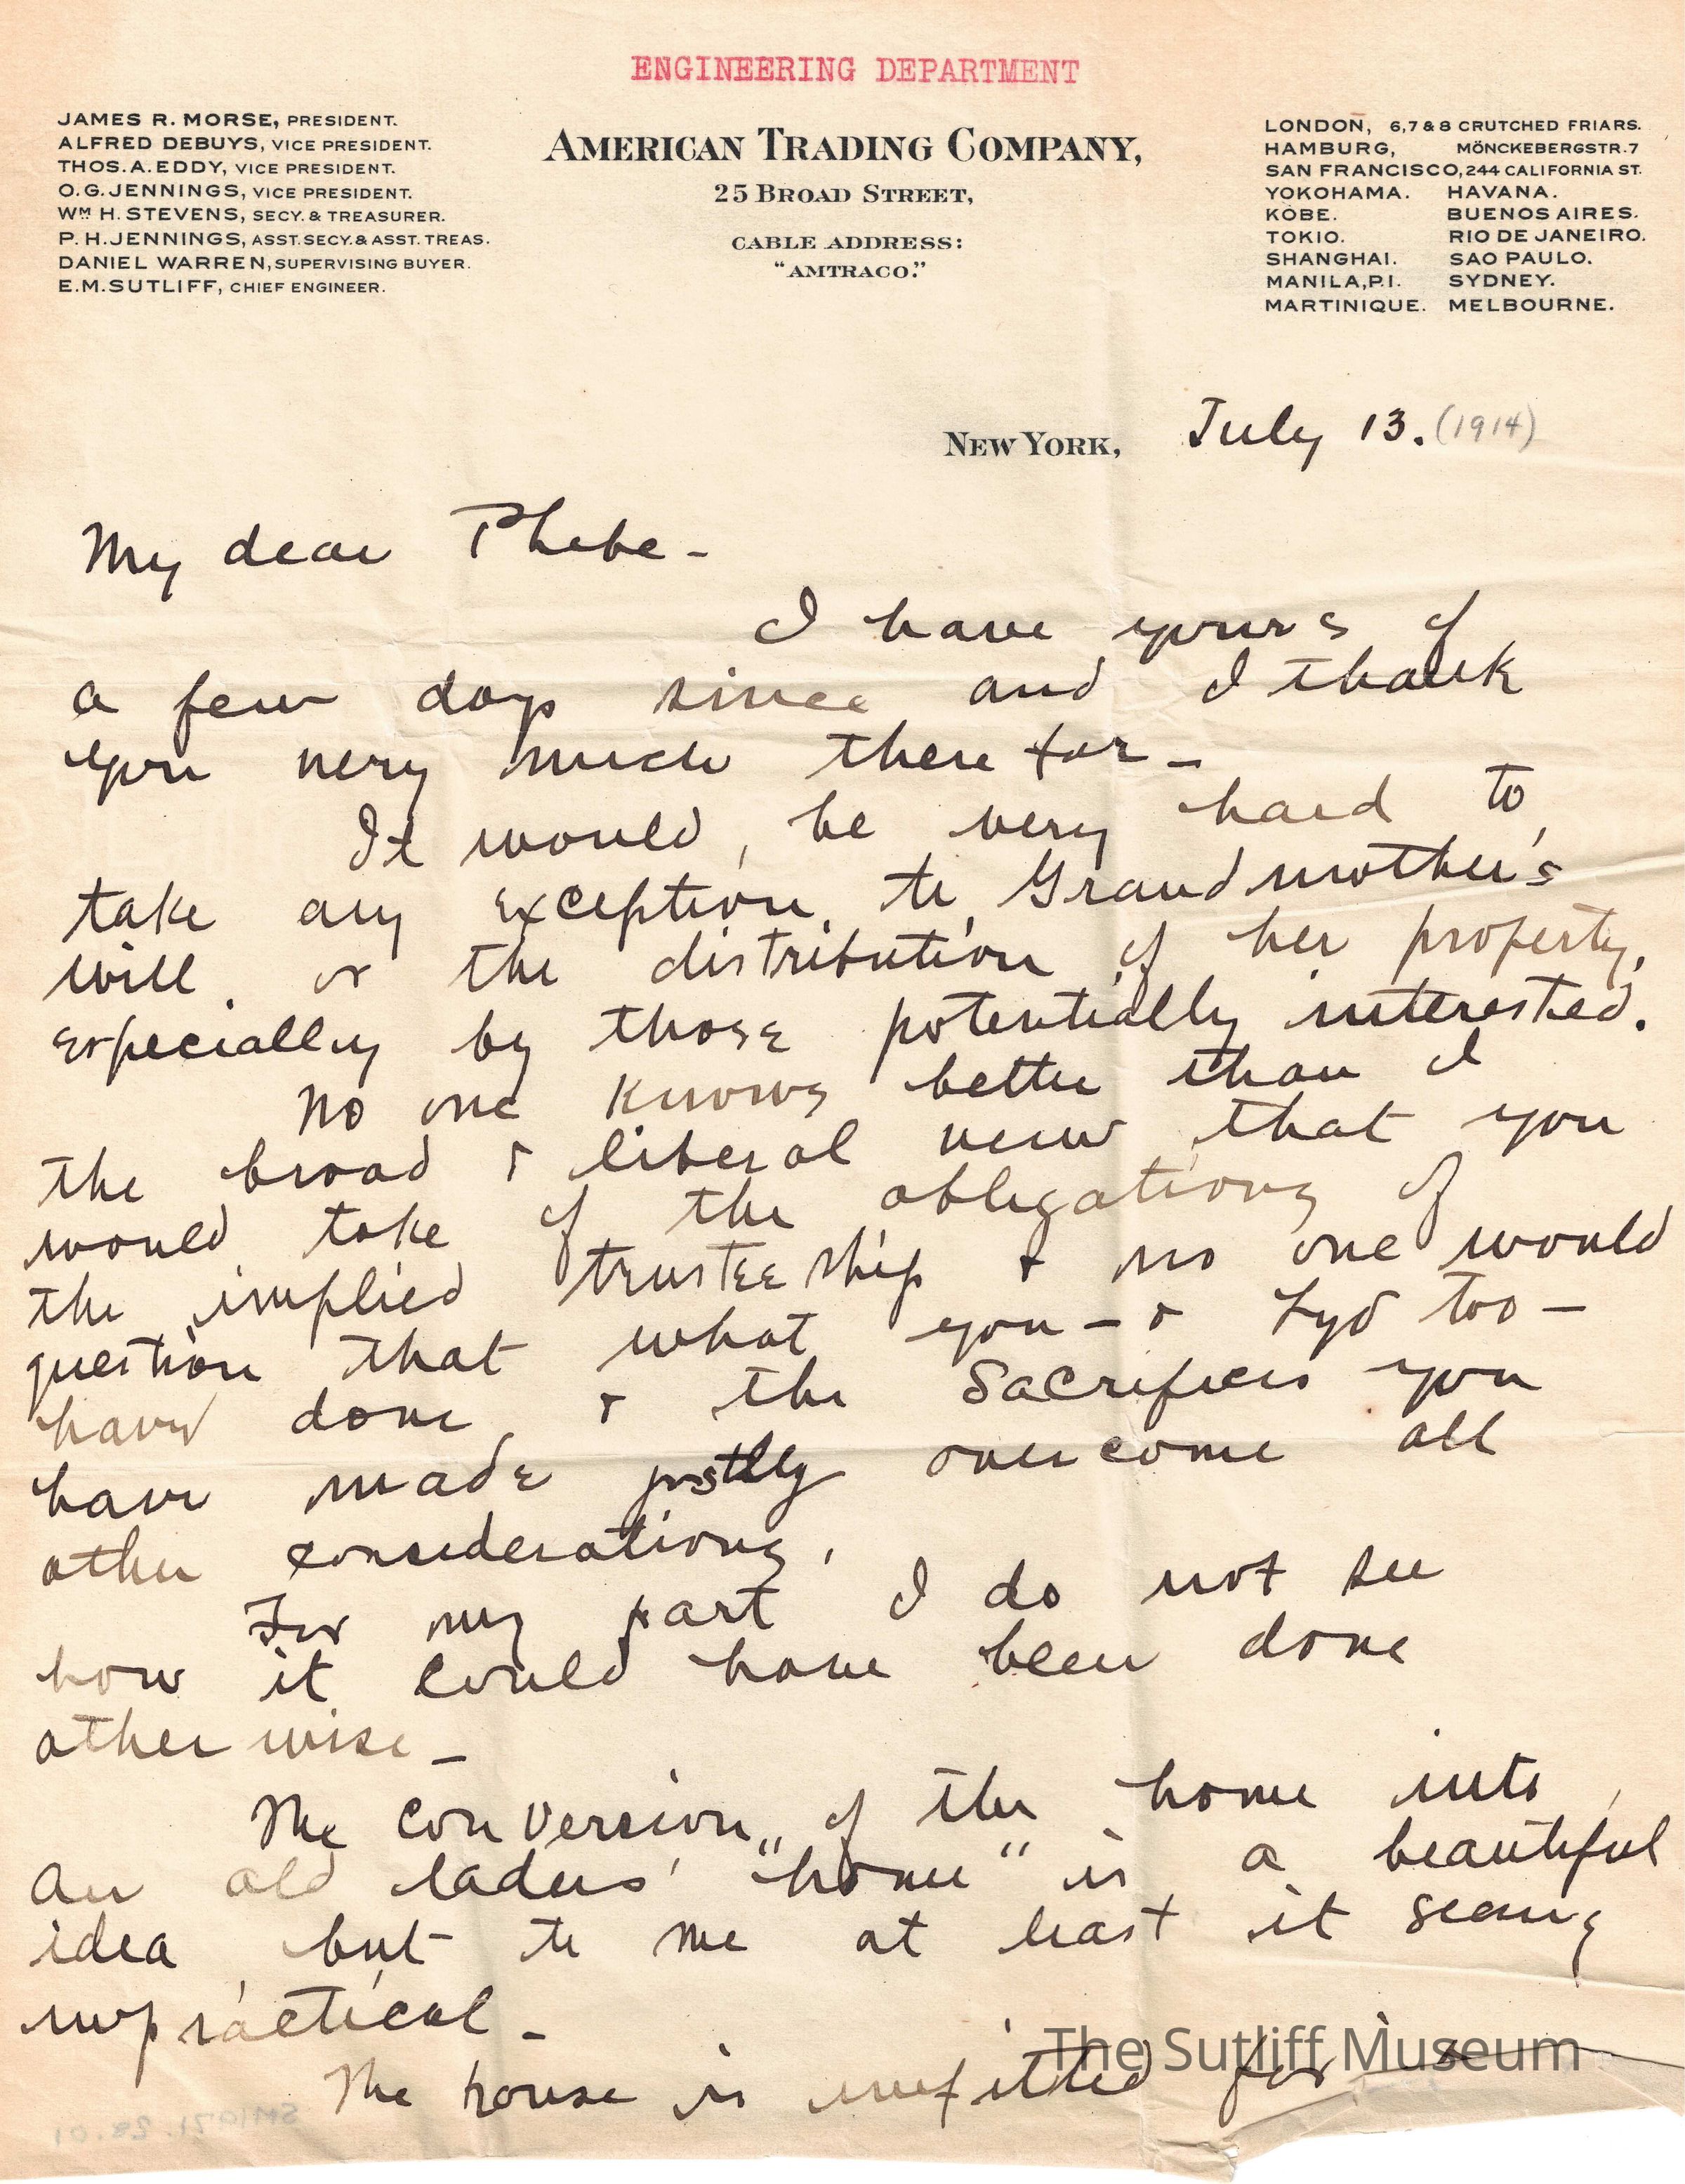 ENGINEERING DEPARTMENT
JAMES R. MORSE, PRESIDENT.
ALFRED DEBUYS, VICE PRESIDENT.
THOS. A. EDDY, VICE PRESIDENT.
O. G. JENNINGS, VICE PRESIDENT.
WM H. STEVENS, SECY. & TREASURER.
P. H. JENNINGS, ASST. SECY. & ASST. TREAS.
DANIEL WARREN, SUPERVISING BUYER.
E. M. SUTLIFF, CHIEF ENGINEER.
AMERICAN TRADING COMPANY,
25 BROAD STREET,
CABLE ADDRESS:
"AMTRACO."
LONDON, 6,7 & 8 CRUTCHED FRIARS.
HAMBURG, MÖNCKEBERGSTR. 7
SAN FRANCISCO, 244 CALIFORNIA ST.
YOKOHAMA. HAVANA.
KOBE. BUENOS AIRES.
TOKIO. RIO DE JANEIRO.
SHANGHAI. SAO PAULO.
MANILA, P.I. SYDNEY.
MARTINIQUE. MELBOURNE.
NEW YORK, July 13. (1914)
My dear Phebe -
I have yours of
a few days since and I thank
you very much therefor -
It would be very hard to
take any exception to Grandmother's
will or the distribution of her property,
especially by those potentially interested.
No one knows better than I
the broad & liberal view that you
would take of the obligations of
the implied trusteeship & no one would
question that what you - & Lyd too -
have done & the sacrifices you
have made justly overcome all
other considerations.
For my part I do not see
how it could have been done
otherwise -
The conversion of the home into
an old ladies' "home" is a beautiful
idea but to me at least it seems
impractical -
The house is unfitted for
The Sutliff Museum
SM1071.28.01